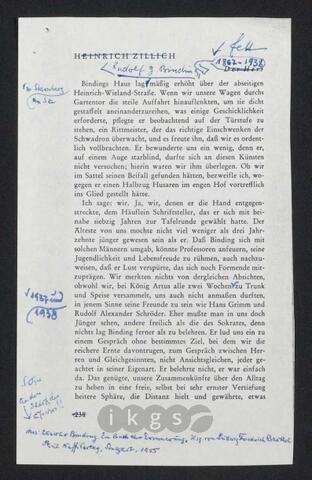 HEINRICH ZILLICH
fett
Rudolf G. Binding
1867-1938
Bindings Haus lag mäßig erhöht über der abseitigen
Heinrich-Wieland-Straße. Wenn wir unsere Wagen durchs
Gartentor die steile Auffahrt hinauflenkten, um sie dicht
gestaffelt aneinanderzureihen, was einige Geschicklichkeit
erforderte, pflegte er beobachtend auf der Türstufe zu
stehen, ein Rittmeister, der das richtige Einschwenken der
Schwadron überwacht, und es freute ihn, daß wir es ordent-
lich vollbrachten. Er bewunderte uns ein wenig, denn er,
auf einem Auge starblind, durfte sich an diesen Künsten
nicht versuchen; hierin waren wir ihm überlegen. Ob wir
im Sattel seinen Beifall gefunden hätten, bezweifle ich, wo-
gegen er einen Halbzug Husaren im engen Hof vortrefflich
ins Glied gestellt hätte.
Ich sage: wir. Ja, wir, denen er die Hand entgegen-
streckte, dem Häuflein Schriftsteller, das er sich mit bei-
nahe siebzig Jahren zur Tafelrunde gewählt hatte. Der
Älteste von uns mochte nicht viel weniger als drei Jahr-
zehnte jünger gewesen sein als er. Daß Binding sich mit
solchen Männern umgab, könnte Professoren anfeuern, seine
Jugendlichkeit und Lebensfreude zu rühmen, auch nachzu-
weisen, daß er Lust verspürte, das sich noch Formende mit-
zuprägen. Wir merkten nichts von dergleichen Absichten,
obwohl wir, bei König Artus alle zwei Wochen zu Trunk
und Speise versammelt, uns auch nicht anmaßen durften,
in jenem Sinne seine Freunde zu sein wie Hans Grimm und
Rudolf Alexander Schröder. Eher mußte man in uns doch
Jünger sehen, andere freilich als die des Sokrates, denn
nichts lag Binding ferner als zu belehren. Er lud uns ein zu
einem Gespräch ohne bestimmtes Ziel, bei dem wir die
reichere Ernte davontrugen, zum Gespräch zwischen Her-
ren und Gleichgesinnten, nicht Ansichtsgleichen, jeder ge-
achtet in seiner Eigenart. Er belehrte nicht, er war einfach
da. Das genügte, unsere Zusammenkünfte über den Alltag
zu heben in eine freie, selbst bei sehr ernster Vertiefung
heitere Sphäre, die Distanz hielt und gewährte, etwas
1937 und
1938
238
ikgs